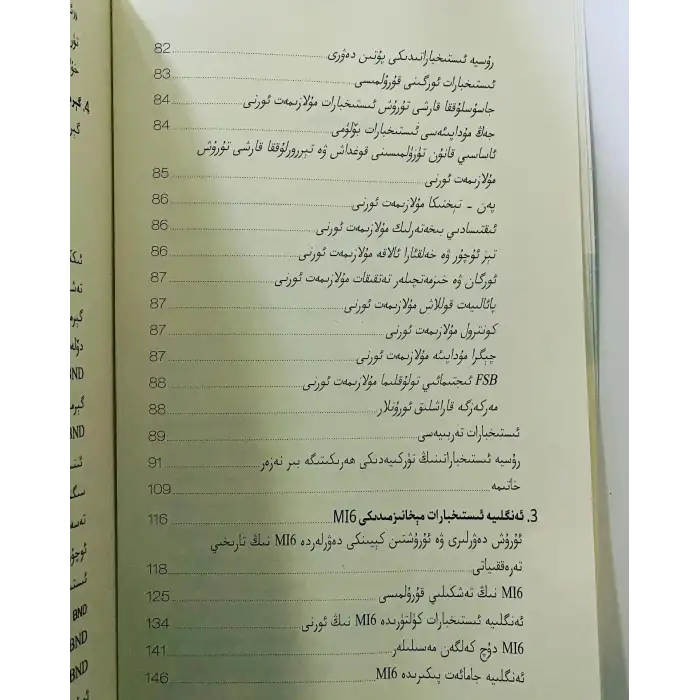 رۇسىيە ئىستىخباراتىدىكى پۈتىن دەۋرى 82
ئىستىخبارات ئورگىنى قۇرۇلمىسى 83
جاسۇسلۇققا قارشى تۇرۇش ئىستىخبارات مۇلازىمەت ئورنى 84
جەڭ مۇداپىئەسى ئىستىخبارات بۆلۈمى 84
ئاساسىي قانۇن تۈزۈلمىسىنى قوغداش ۋە تېررورلۇققا قارشى تۇرۇش
مۇلازىمەت ئورنى 85
پەن - تېخنىكا مۇلازىمەت ئورنى 86
ئىقتىسادىي بىخەتەرلىك مۇلازىمەت ئورنى 86
تېز ئۇچۇر ۋە خەلقئارا ئالاقە مۇلازىمەت ئورنى 86
ئورگان ۋە خىزمەتچىلەر تەتقىقات مۇلازىمەت ئورنى 87
پائالىيەت قوللاش مۇلازىمەت ئورنى 87
كونترول مۇلازىمەت ئورنى 87
چېگرا مۇداپىئە مۇلازىمەت ئورنى 87
FSB ئىجتىمائىي تولۇقلىما مۇلازىمەت ئورنى 88
مەركەزگە قاراشلىق ئورۇنلار 88
ئىستىخبارات تەربىيەسى 89
رۇسىيە ئىستىخباراتىنىڭ تۈركىيەدىكى ھەرىكىتىگە بىر نەزەر 91
خاتىمە 109
3. ئەنگلىيە ئىستىخبارات مېخانىزمىدىكى MI6 116
ئۇرۇش دەۋرلىرى ۋە ئۇرۇشتىن كېيىنكى دەۋرلەردە MI6 نىڭ تارىخىي
تەرەققىياتى 118
MI6 نىڭ تەشكىلىي قۇرۇلمىسى 125
ئەنگلىيە ئىستىخبارات كۈلتۈرىدە MI6 نىڭ ئورنى 134
MI6 دۇچ كەلگەن مەسىلىلەر 141
ئەنگلىيە جامائەت پىكىرىدە MI6 146
BND
BND
BND
BND
BND